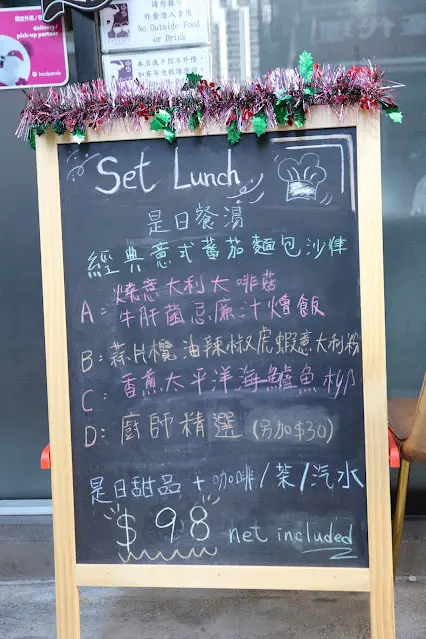 delivery/
pick-up partner
foodpanda
請勿攜帶
外食進入食用
No Outside Food
or Drink
Set Lunch
是日餐湯
經典意式蕃茄麵包沙律
A: 燒意大利大啡菇
牛肝菌忌廉汁燴飯
B: 蒜片欖油辣椒虎蝦意大利粉
C: 香煎太平洋海鱸魚柳
D: 廚師精選 (另加$30)
是日甜品 + 咖啡/茶/汽水
$98 net included